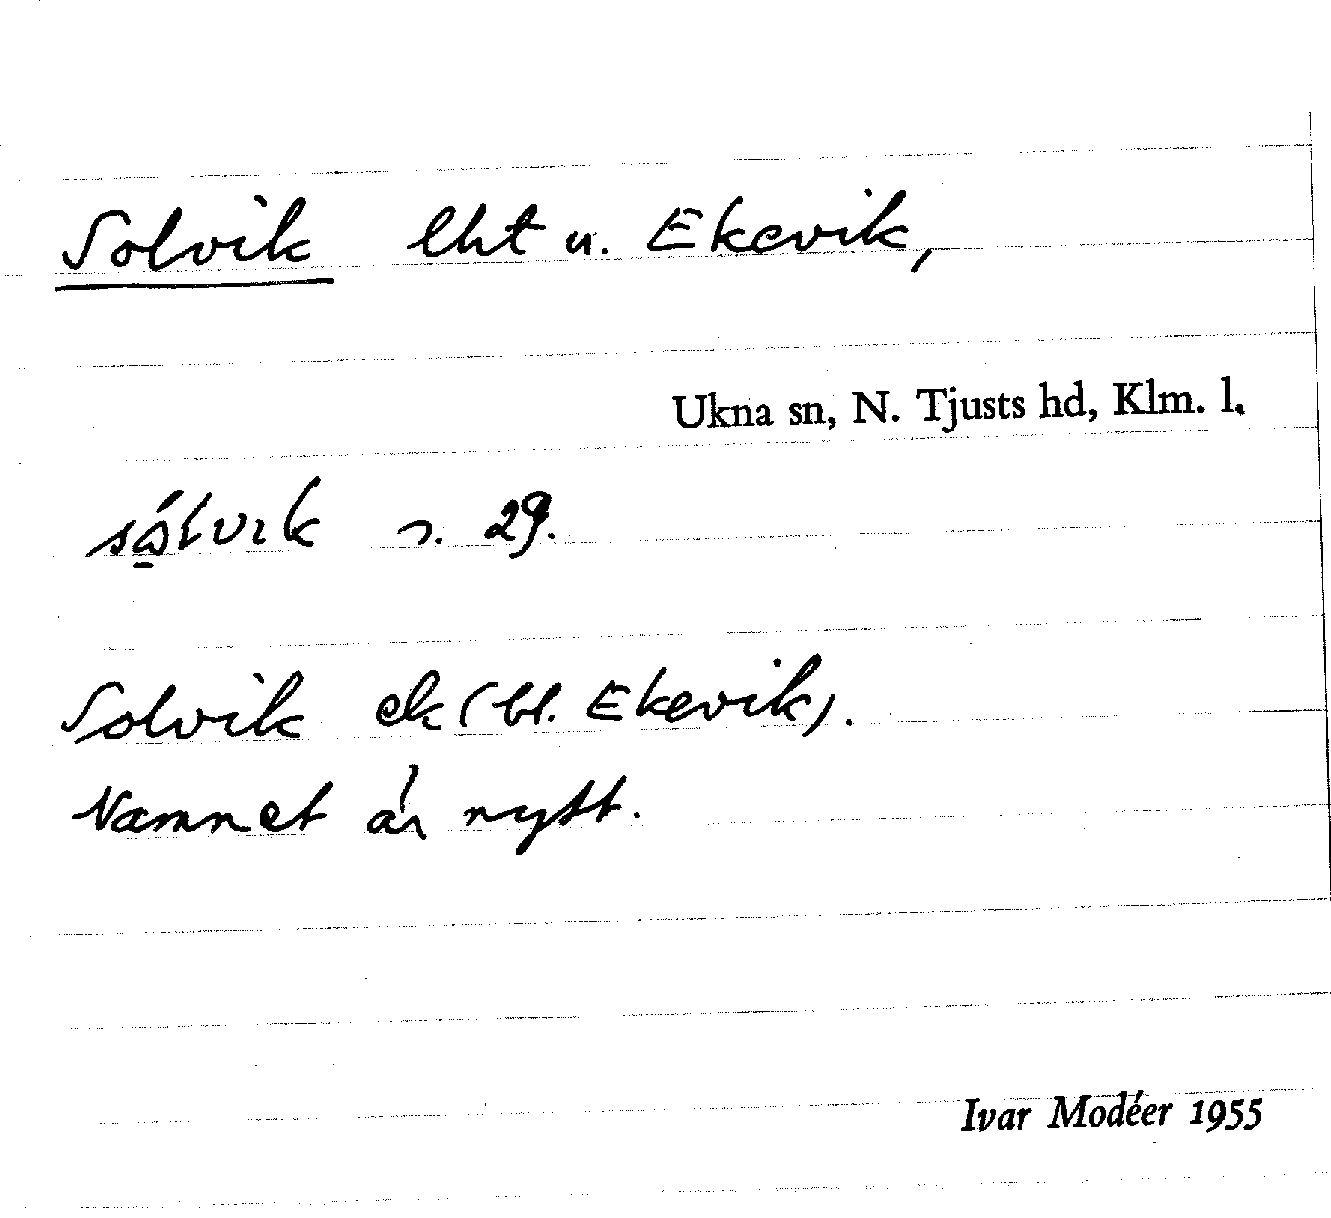 Solvik lht u. Ekevik,
Ukna sn, N. Tjusts hd, Klm. l.
s. 29.
Solvik ek (bl. Ekevik).
Namnet är nytt.
Ivar Modéer 1955